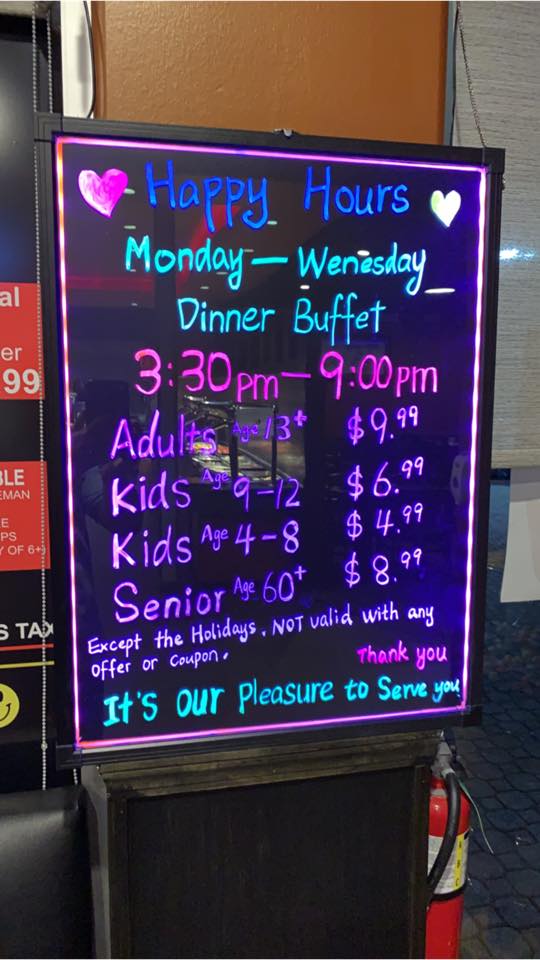 Happy Hours
Monday — Wenesday
Dinner Buffet
3:30pm — 9:00pm
Adults Age 13+ $9.99
Kids Age 9-12 $6.99
Kids Age 4-8 $4.99
Senior Age 60+ $8.99
Except the Holidays. NOT valid with any
offer or coupon.
Thank you
It's our pleasure to serve you
al
er
99
BLE
EMAN
E
PS
Y OF 6+)
S TAX